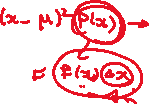 (x - μ)² P(x) →
≈ P(x) Δx